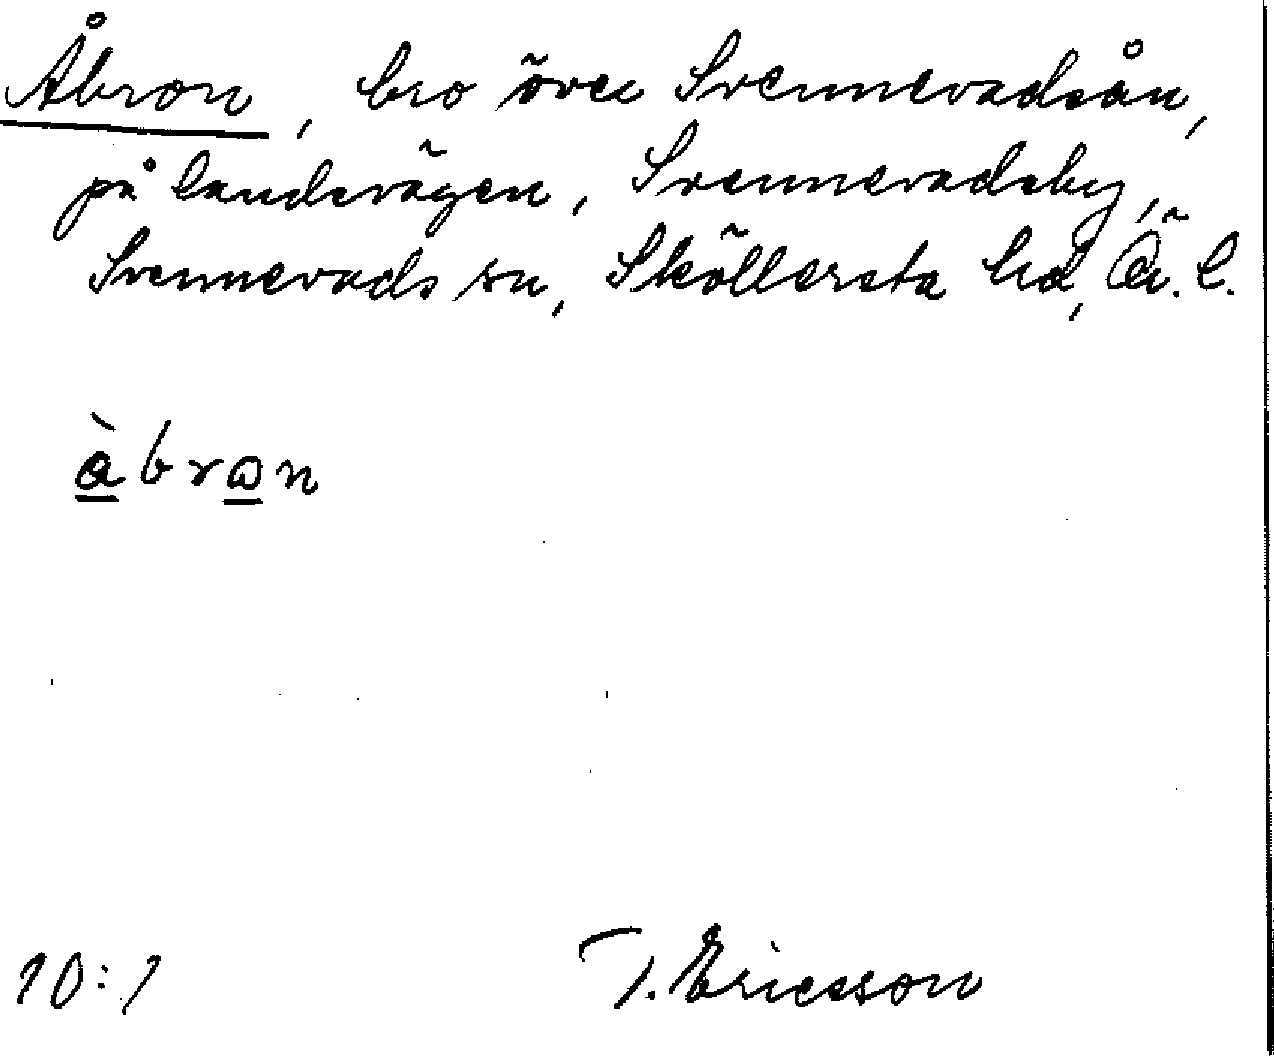 Åbron, bro över Svennevadsån,
på landsvägen, Svennevadsby,
Svennevads sn, Sköllersta hd, Ö. l.
àbron
10:1
T. Ericsson